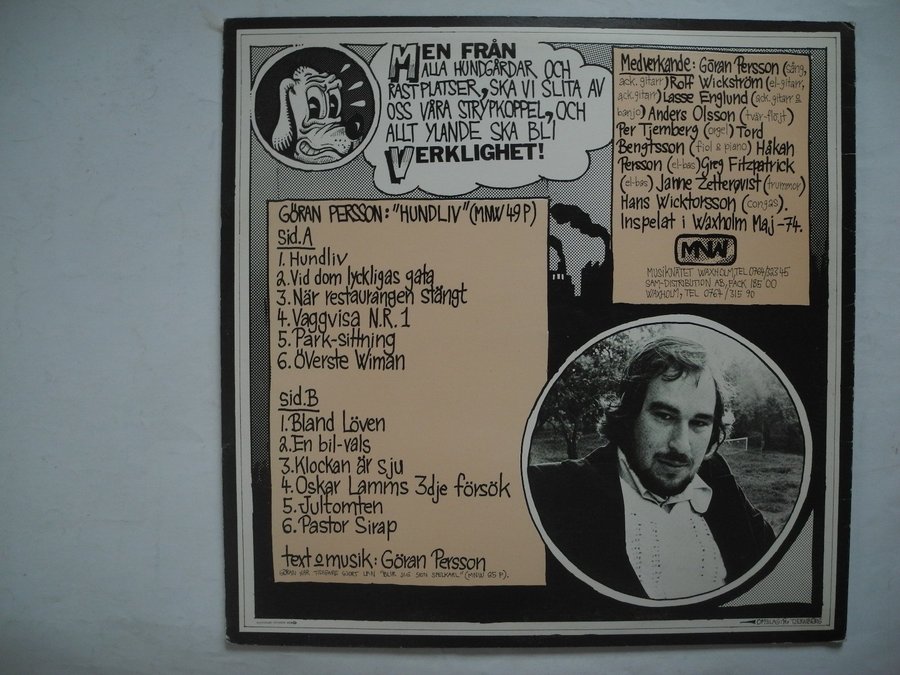 MEN FRÅN
ALLA HUNDGÅRDAR OCH
RASTPLATSER, SKA VI SLITA AV
OSS VÅRA STRYPKOPPEL, OCH
ALLT YLANDE SKA BLI
VERKLIGHET!
Medverkande: Göran Persson (sång,
ack.gitarr) Rolf Wickström (el-gitarr,
ack.gitarr) Lasse Englund (ack.gitarr &
banjo) Anders Olsson (tvär-flöjt)
Per Tjernberg (orgel) Tord
Bengtsson (fiol & piano) Håkan
Persson (el-bas) Greg Fitzpatrick
(el-bas) Janne Zetterqvist (trummor)
Hans Wicktorsson (congas).
Inspelat i Waxholm Maj -74.
MNW
MUSIKNÄTET WAXHOLM, TEL 0764/323 45
SAM-DISTRIBUTION AB, FACK 185 00
WAXHOLM, TEL 0764 / 315 90
GÖRAN PERSSON: "HUNDLIV" (MNW 49 P)
sid.A
1. Hundliv
2. Vid dom lyckligas gata
3. När restaurangen stängt
4. Vaggvisa N.R. 1
5. Park-sittning
6. Överste Wiman
sid.B
1. Bland Löven
2. En bil-vals
3. Klockan är sju
4. Oskar Lamms 3dje försök
5. Jultomten
6. Pastor Sirap
text o musik: Göran Persson
GÖRAN HAR TIDIGARE GJORT LPN "BLIR DIG SJÄLV SPELKARL" (MNW 25 P).